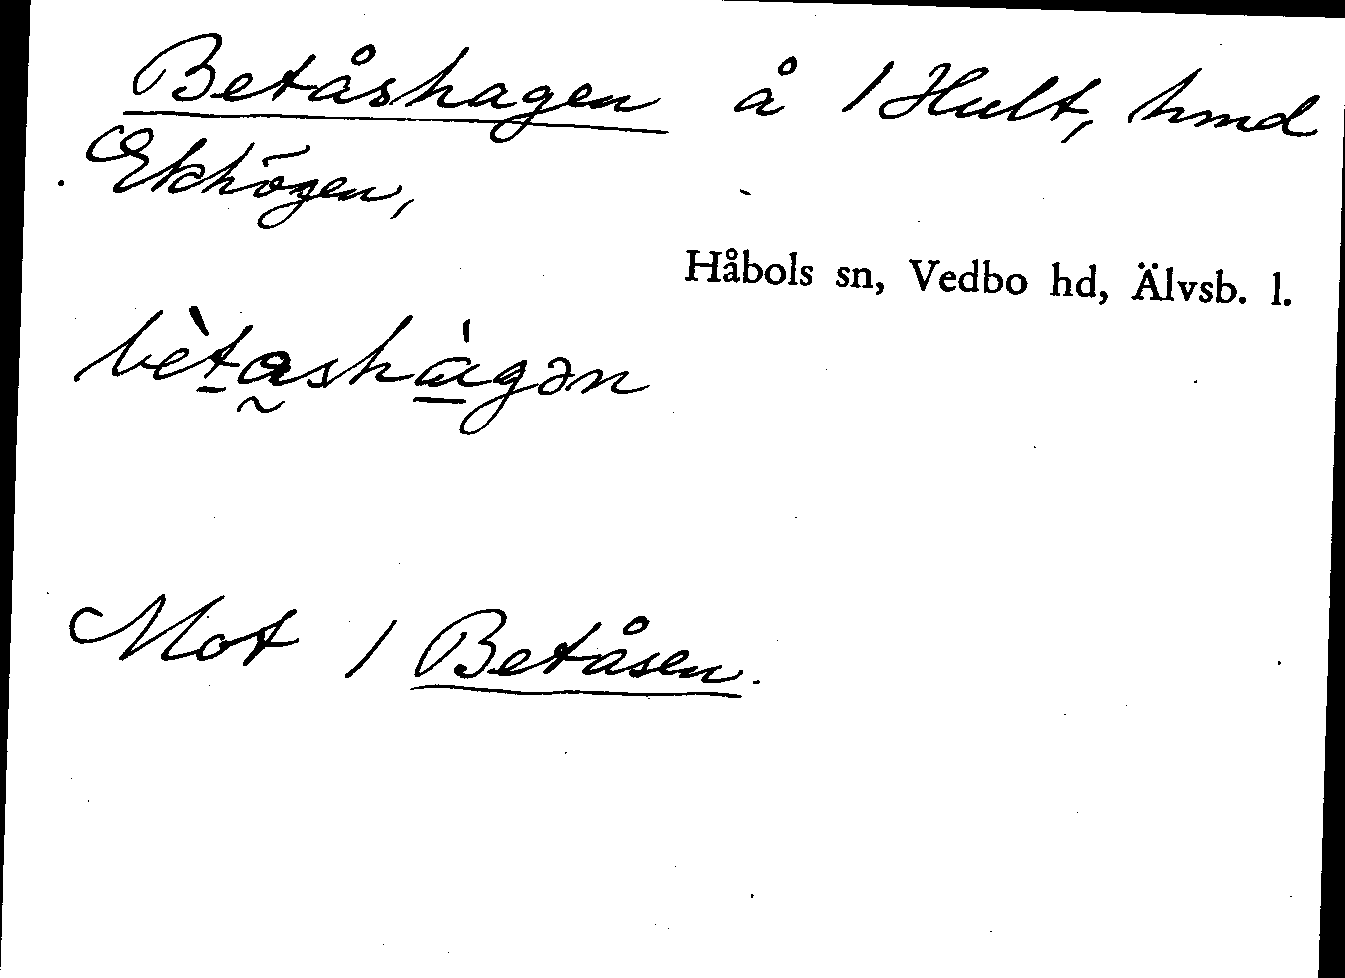 Betåshagen å / Hult, hmd
Ekhögen,
Håbols sn, Vedbo hd, Älvsb. l.
bètashàgən
Mot / Betåsen.